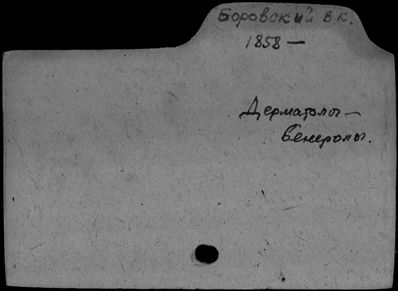 Боровский В.К.
1858 —
Дерматолог —
Венеролог.